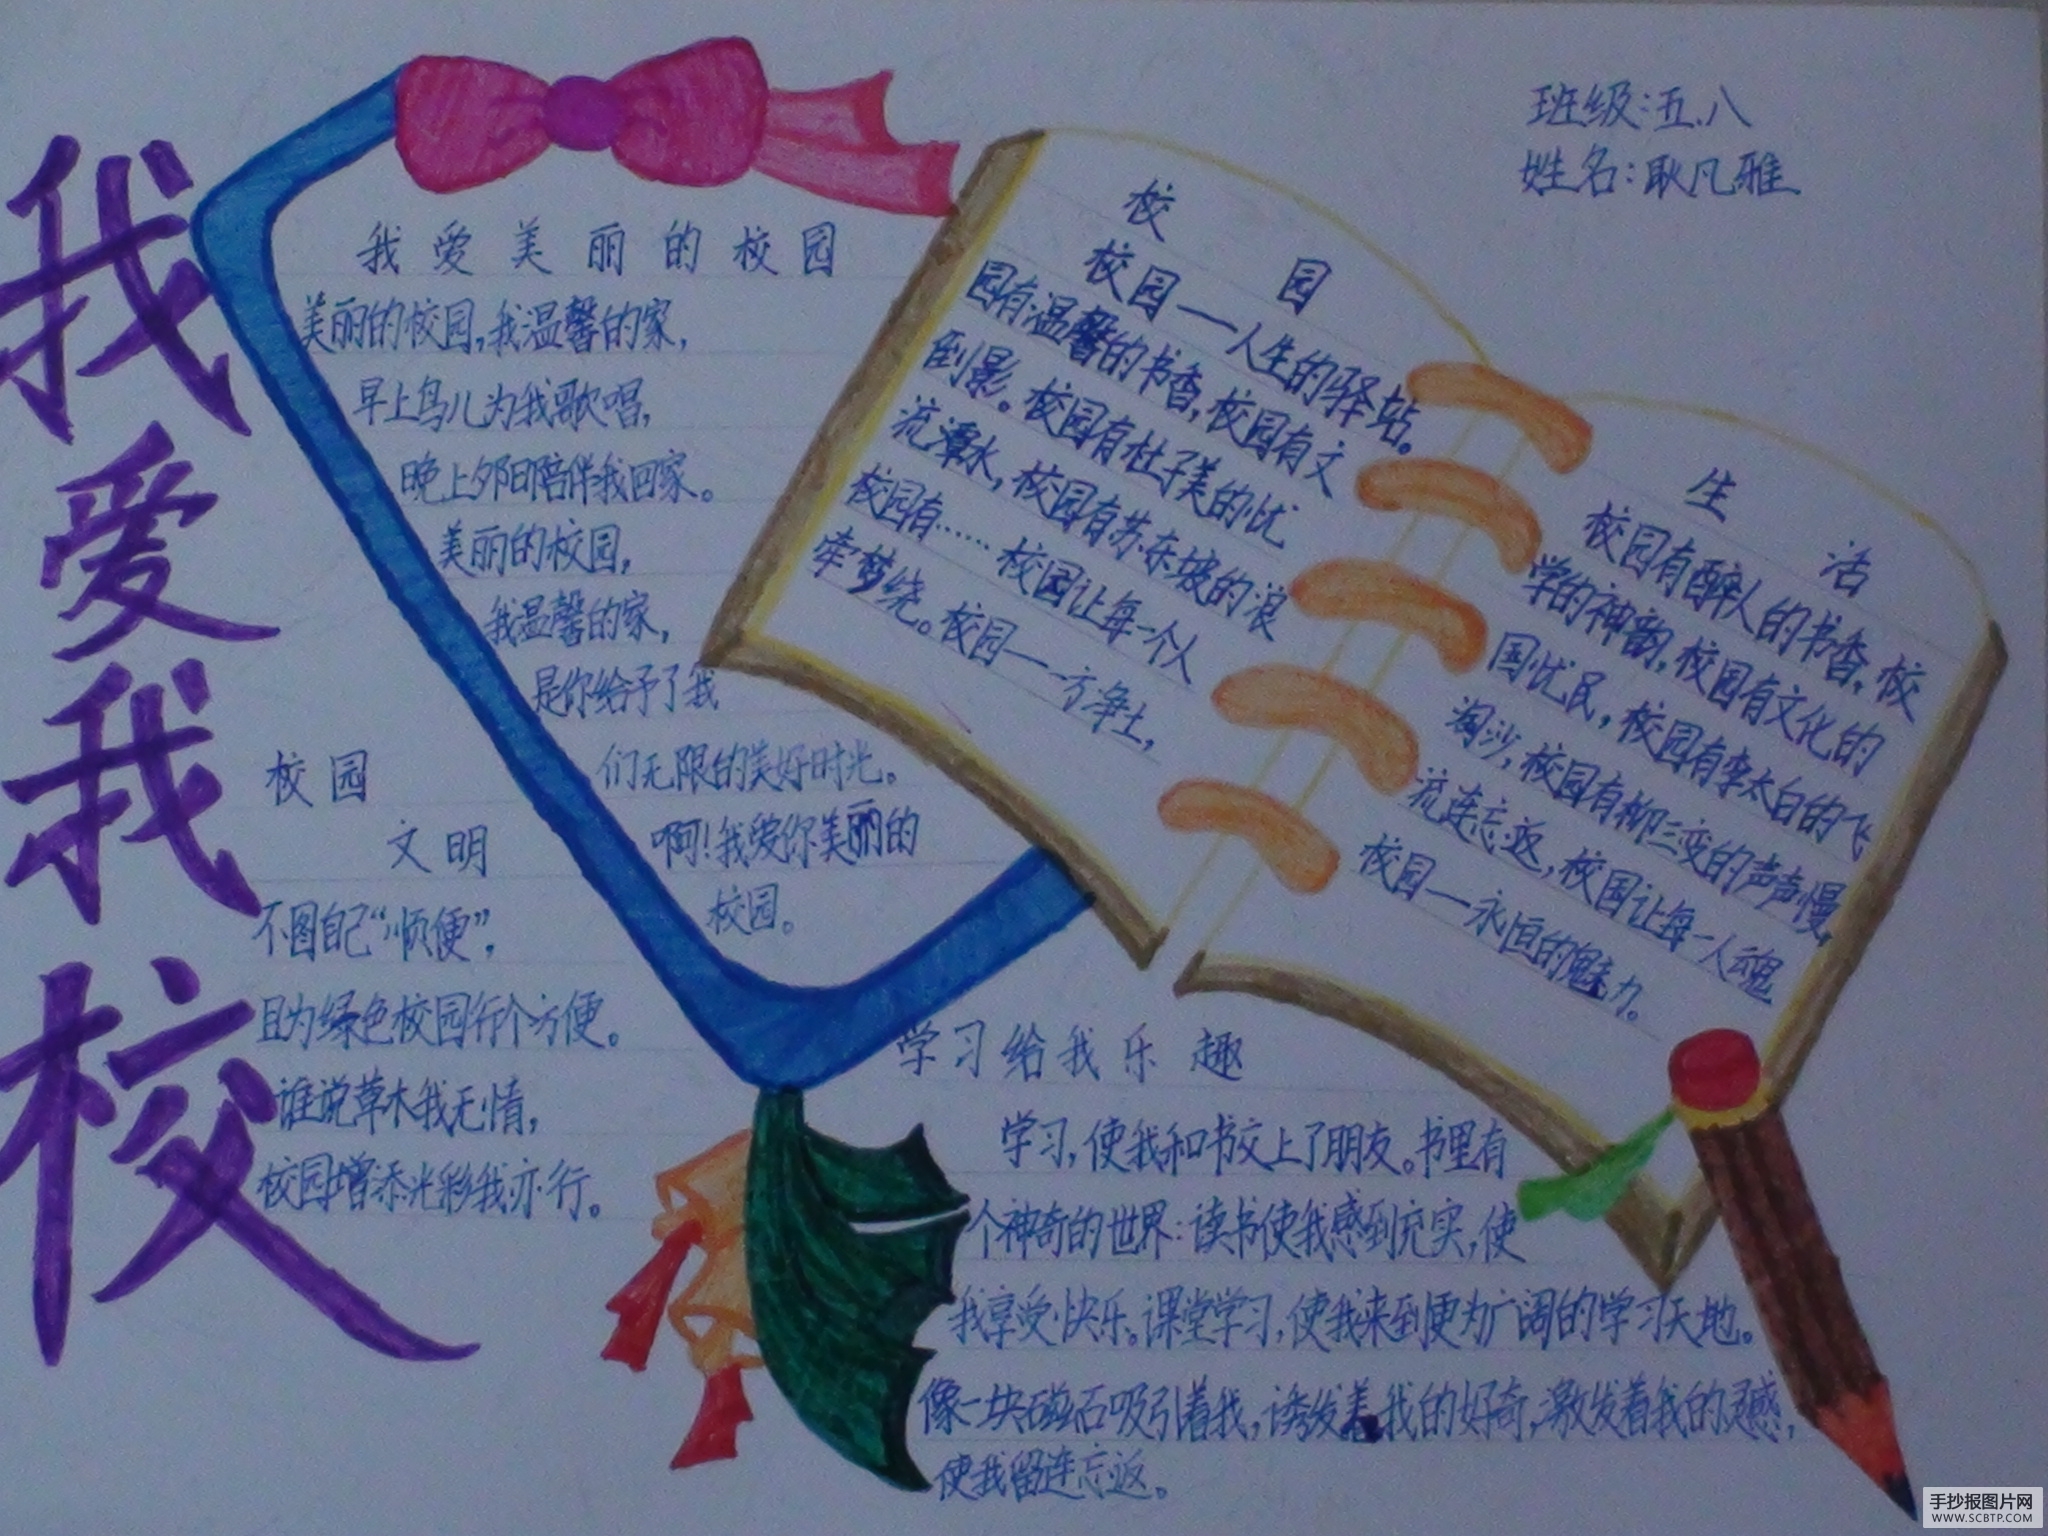 我爱我校
班级:五.八
姓名:耿凡雅
我爱美丽的校园
美丽的校园,我温馨的家,
早上鸟儿为我歌唱,
晚上夕阳陪伴我回家。
美丽的校园,
我温馨的家,
是你给予了我
们无限的美好时光。
啊!我爱你美丽的
校园。
校园
文明
不图自己“顺便”,
且为绿色校园行个方便。
谁说草木我无情,
校园增添光彩我亦行。
校园
校园一一人生的驿站。
园有温馨的书香,校园有文
倒影。校园有杜子美的忧
流潭水,校园有苏东坡的浪
校园有……校园让每一个人
牵梦绕。校园一一方净土,
生活
校园有醉人的书香,校
学的神韵,校园有文化的
国忧民,校园有李太白的飞
淘沙,校园有柳三变的声声慢,
流连忘返,校园让每一人魂
校园一永恒的魅力。
学习给我乐趣
学习,使我和书交上了朋友。书里有
个神奇的世界:读书使我感到充实,使
我享受快乐。课堂学习,使我来到更为广阔的学习天地。
像一块磁石吸引着我,诱发着我的好奇,激发着我的灵感,
使我留连忘返。
手抄报图片网
WWW.SCBTP.COM